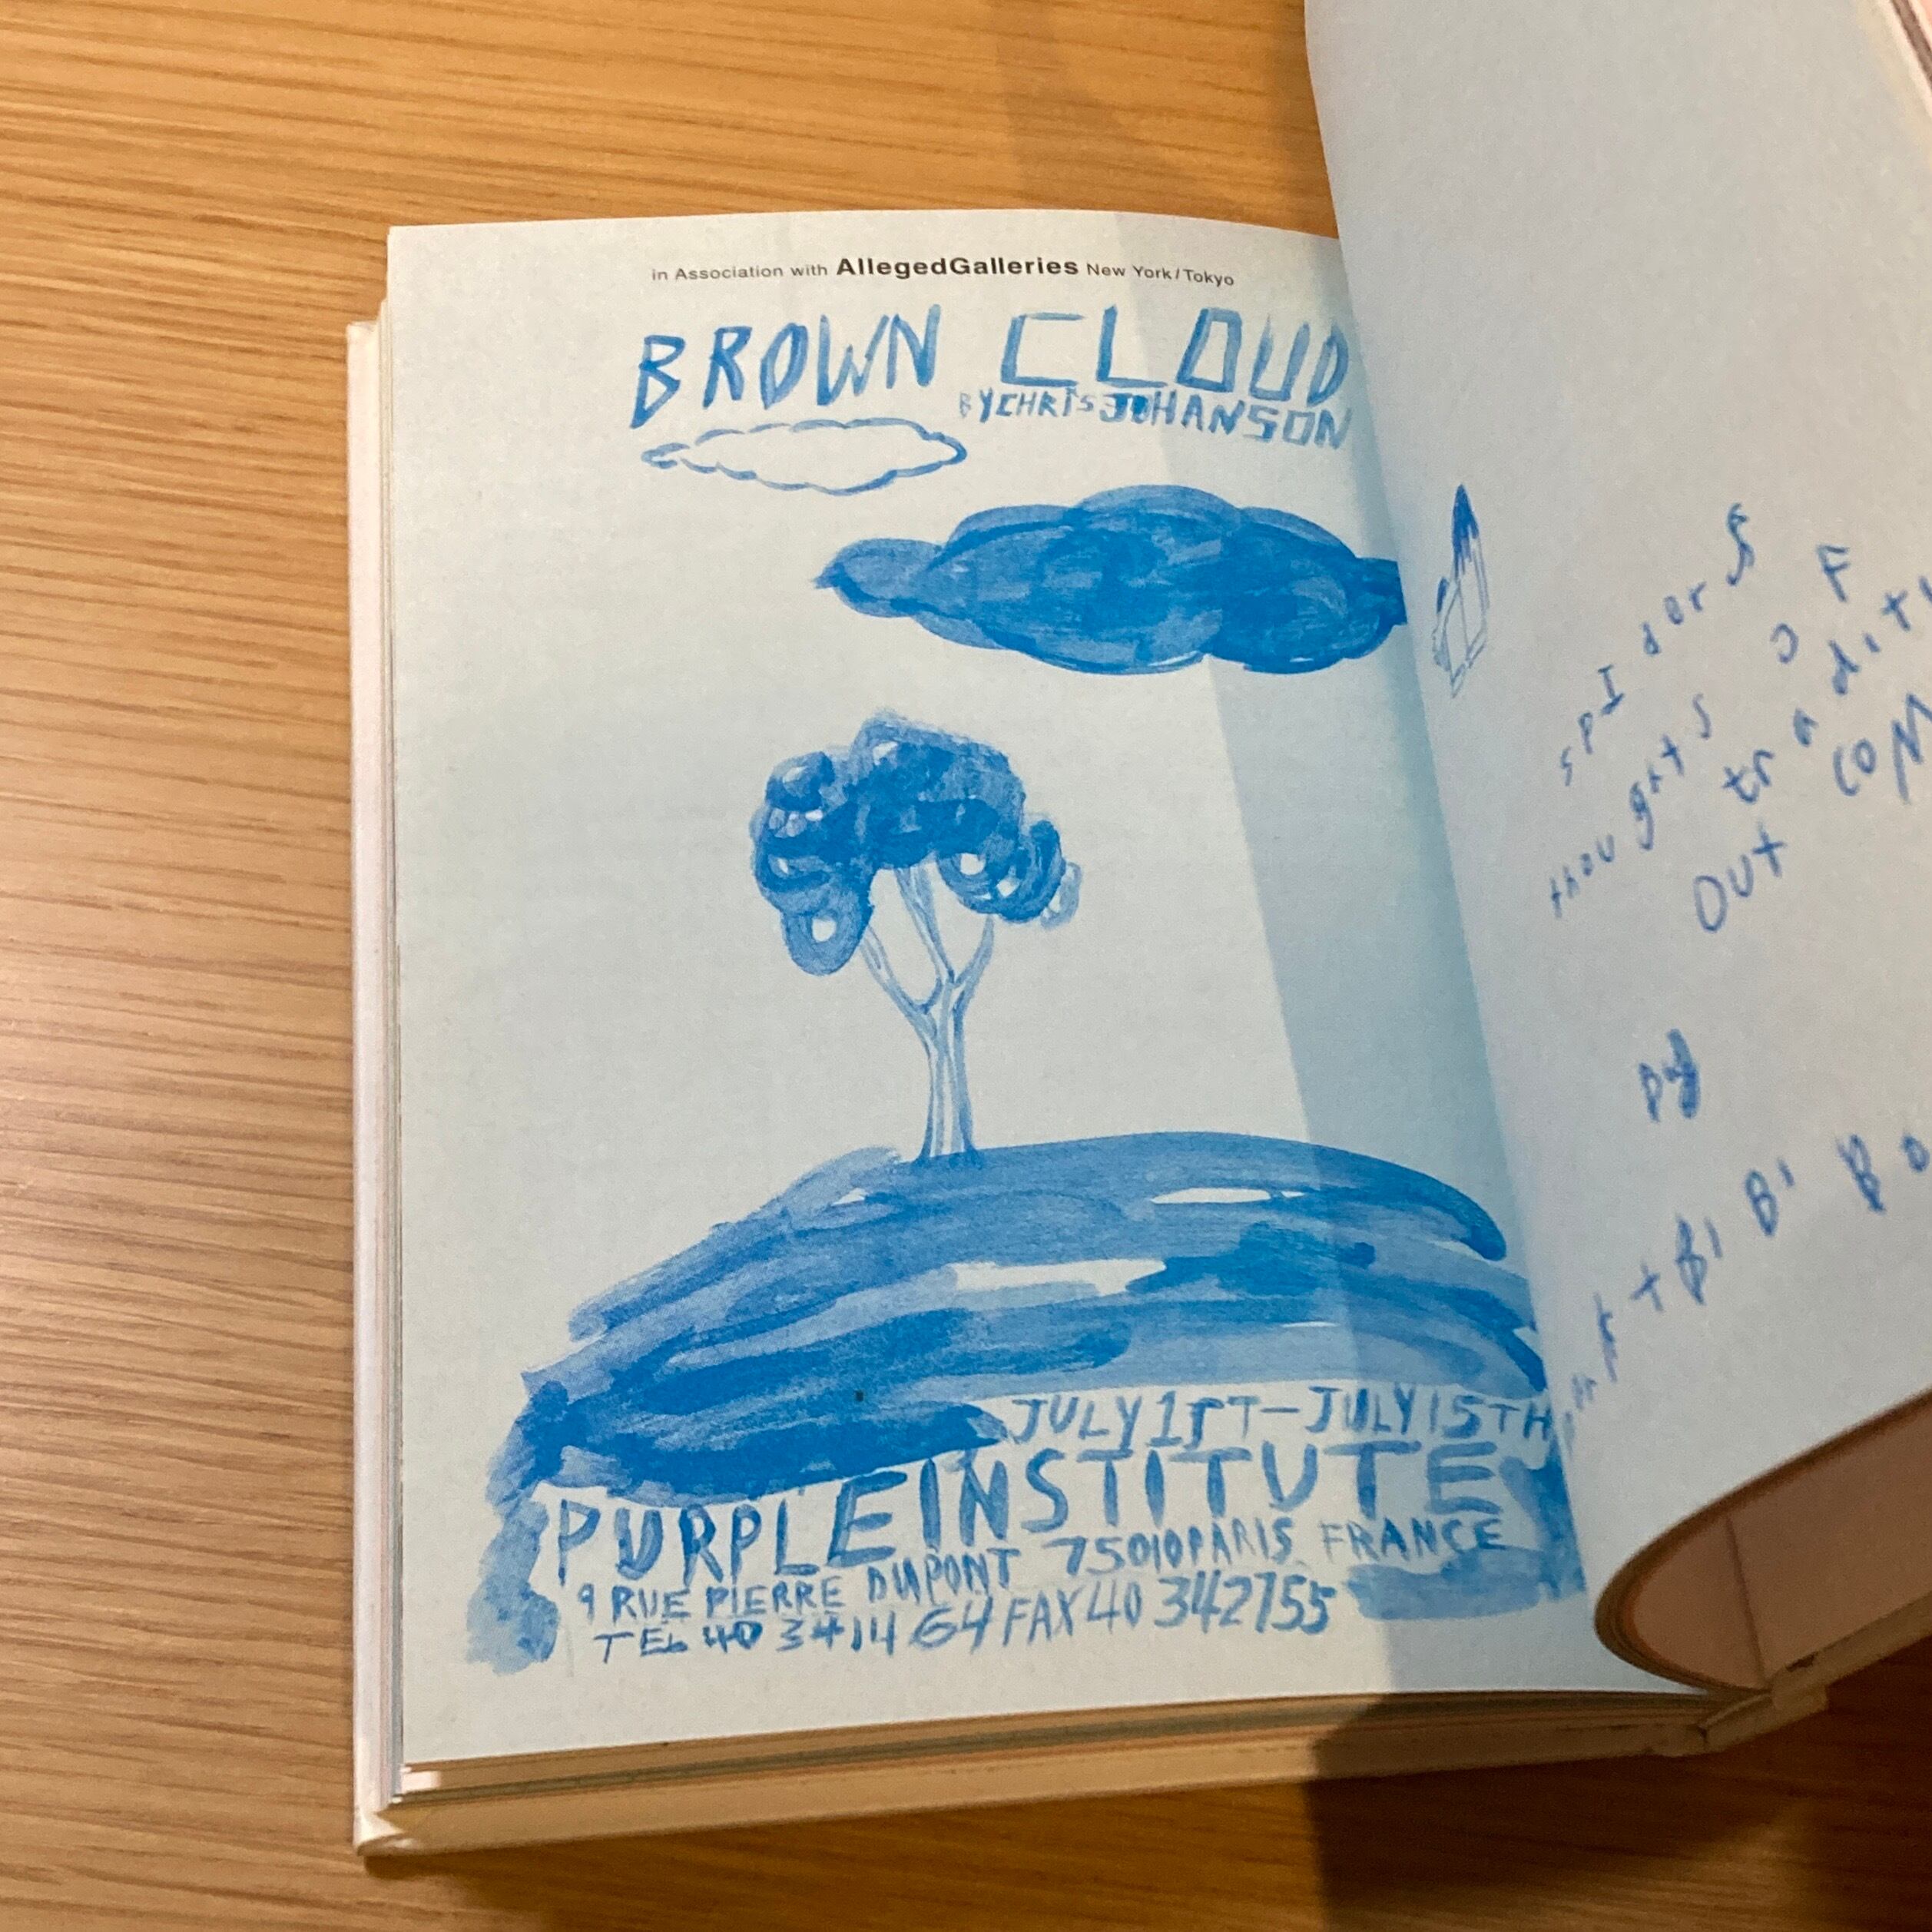 in Association with AllegedGalleries New York/Tokyo
BROWN CLOUD
BY CHRIS JOHANSON
JULY 1ST-JULY 15TH
PURPLE INSTITUTE
9 RUE PIERRE DUPONT 75010 PARIS FRANCE
TEL 40 34 14 64 FAX 40 342755
spIderS
thoughtS OF
out
by